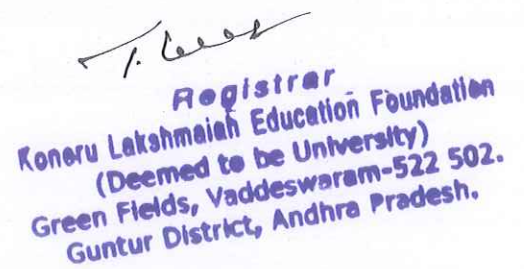 Registrar
Koneru Lakshmaiah Education Foundation
(Deemed to be University)
Green Fields, Vaddeswaram-522 502.
Guntur District, Andhra Pradesh.